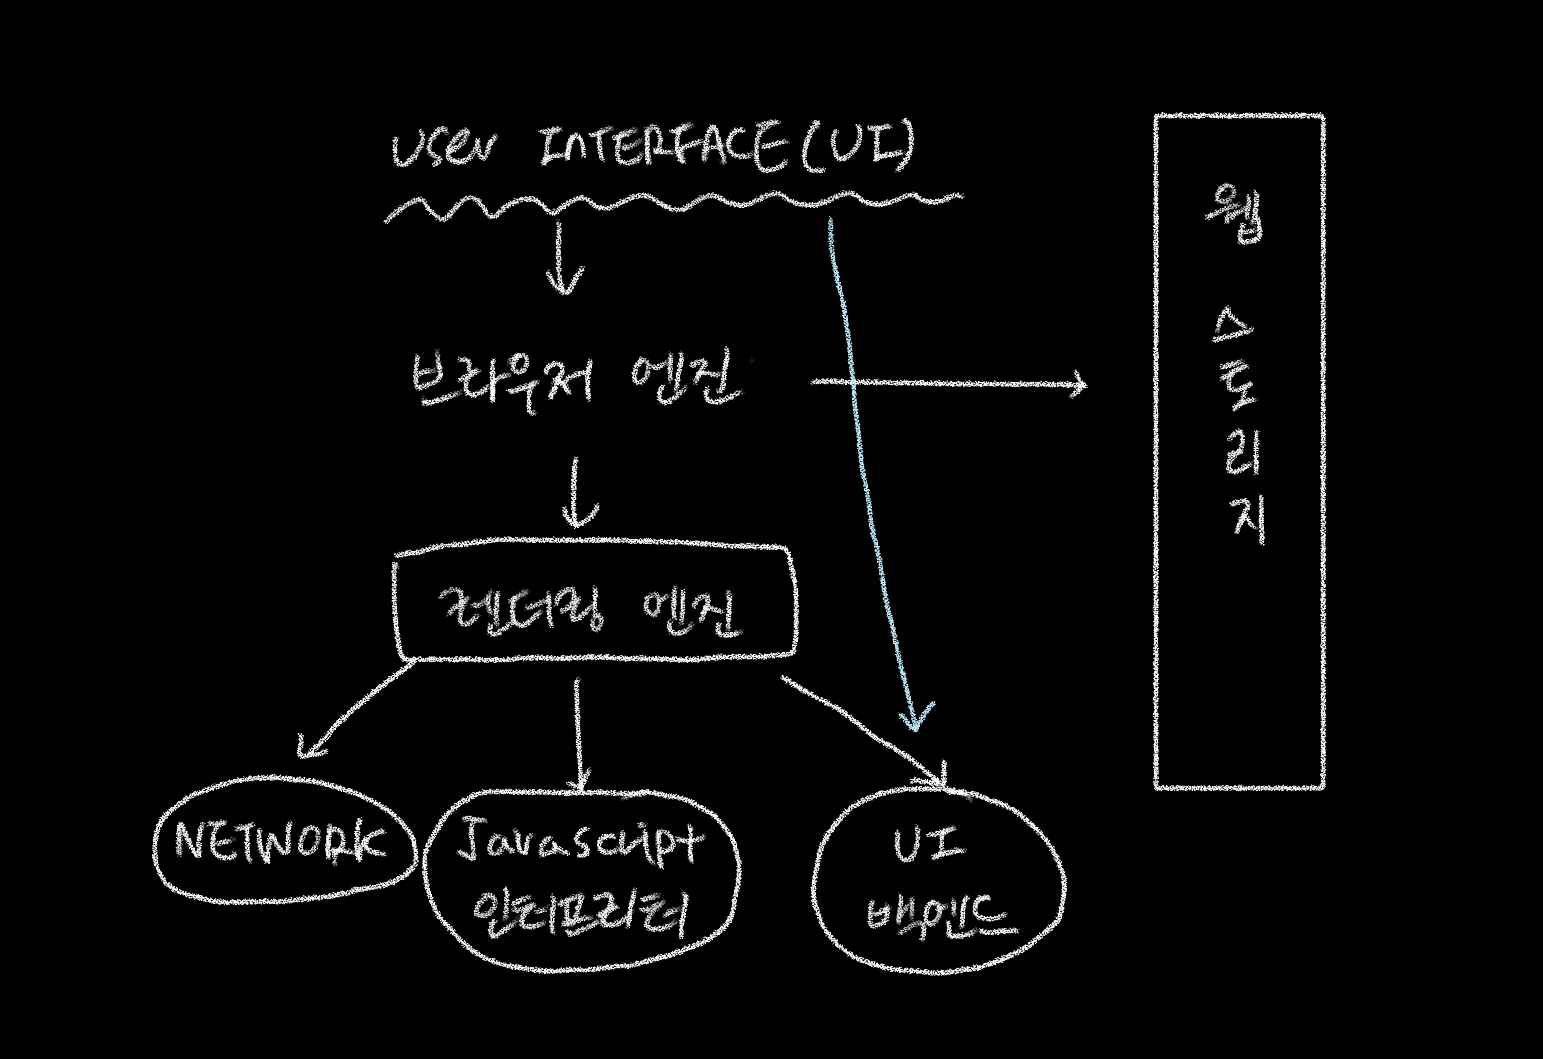 User INTERFACE(UI)
브라우저 엔진
렌더링 엔진
NETWORK
Javascript
인터프리터
UI
백엔드
웹
스
토
리
지